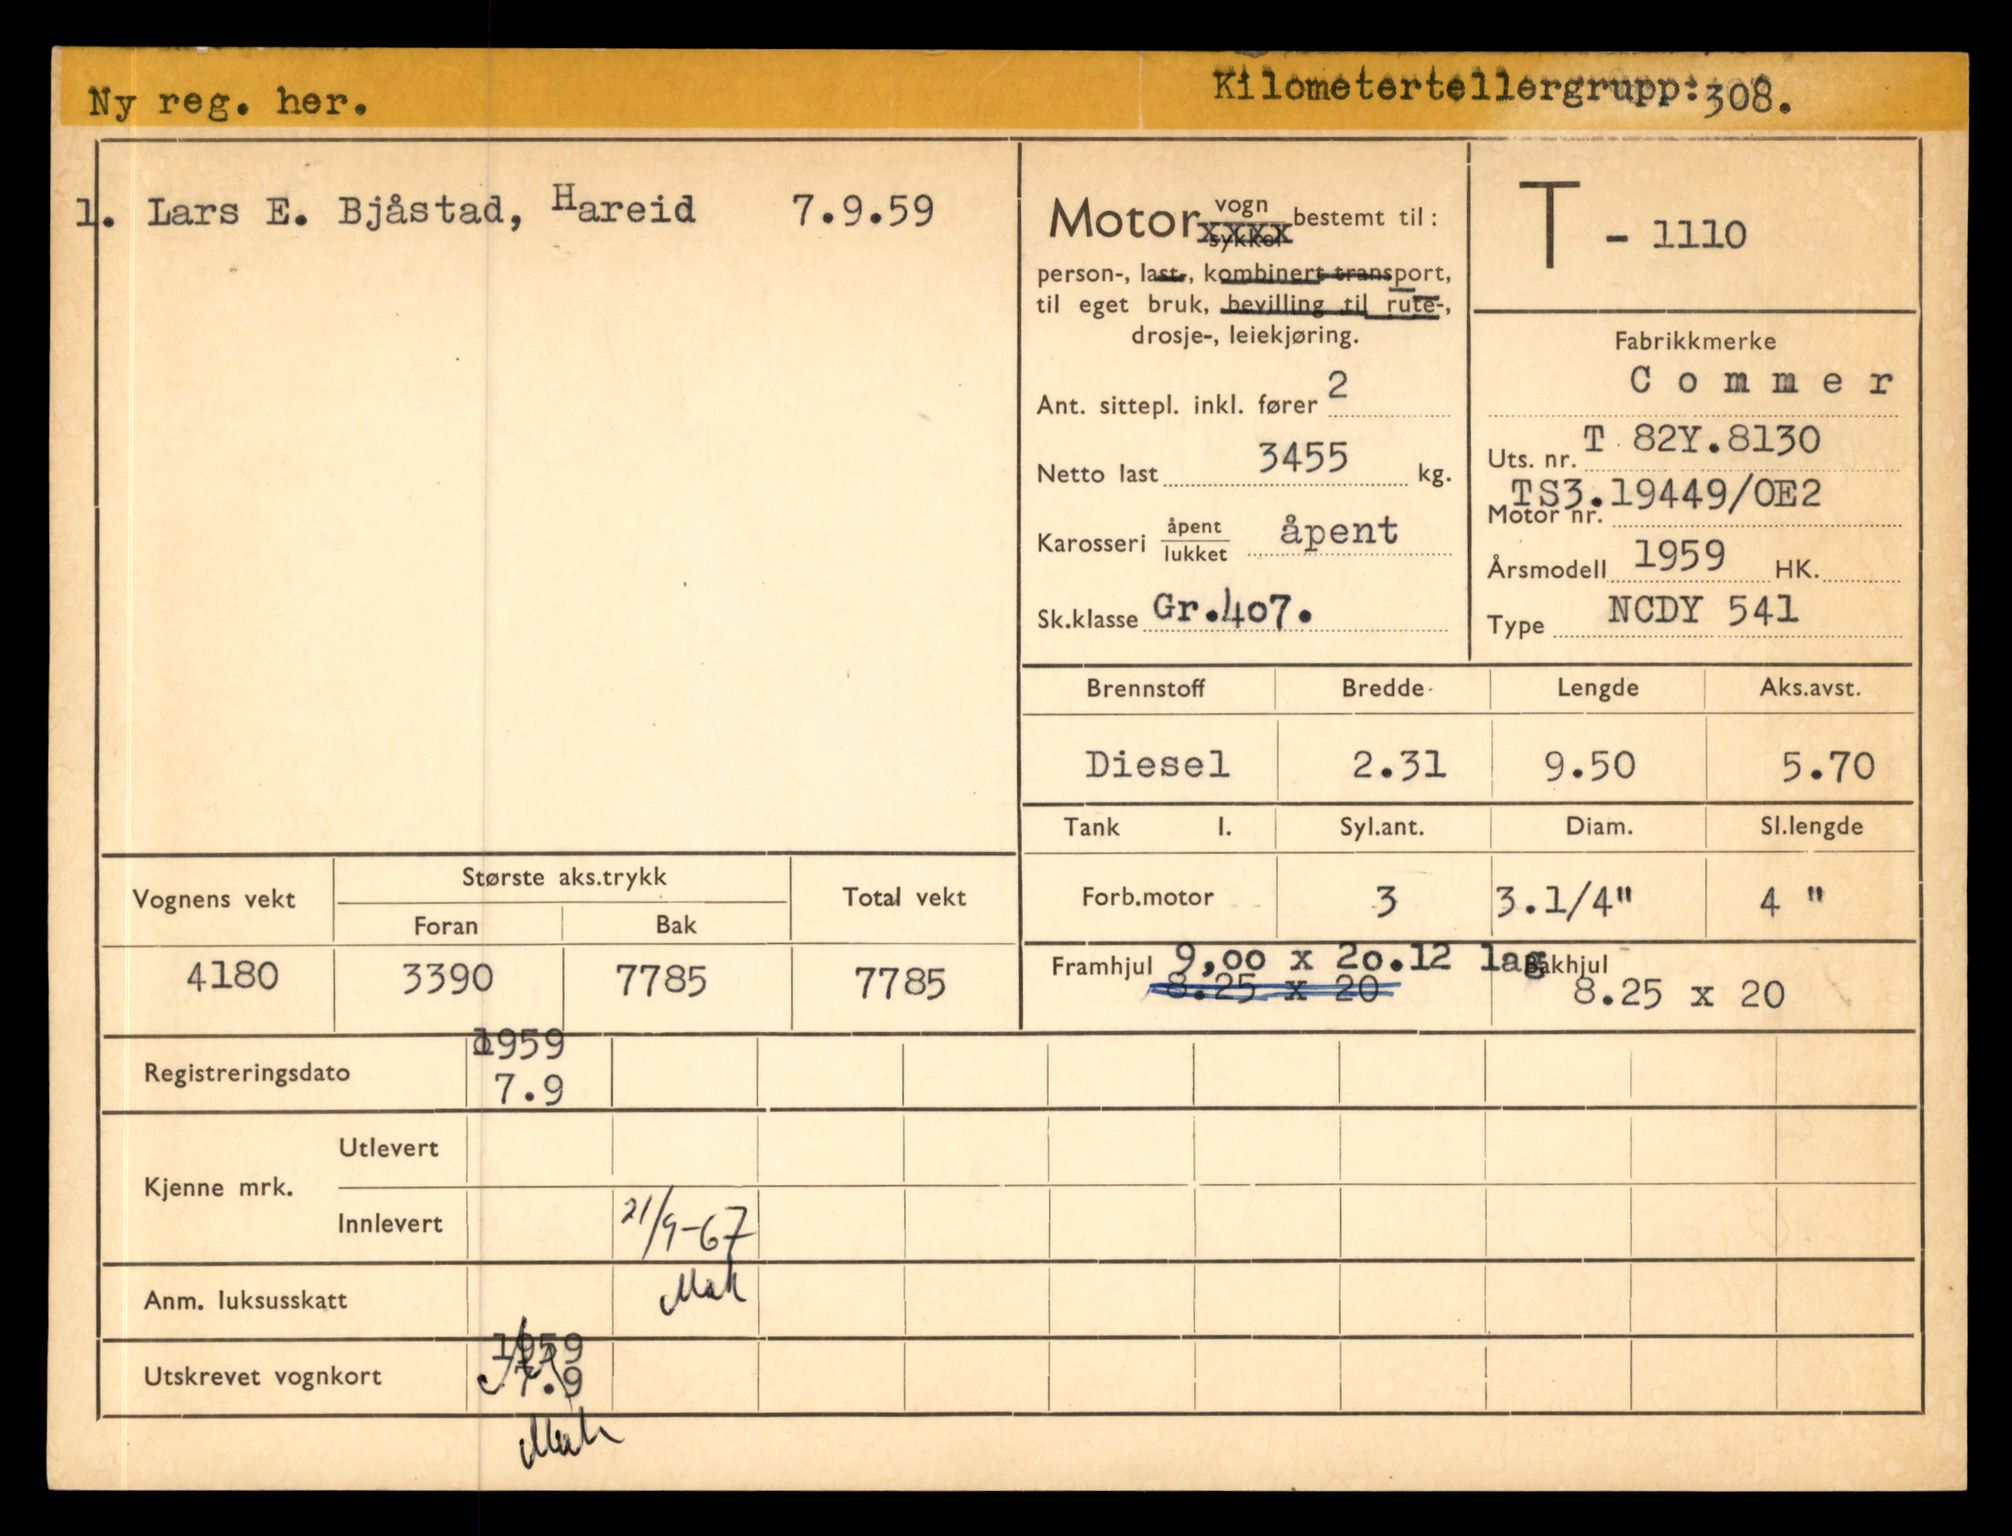 Ny reg. her.
Kilometertellergrupp:308.
1. Lars E. Bjåstad, Hareid 7.9.59
Motor vogn
xxxx sykkel bestemt til:
person-, last-, kombinert transport,
til eget bruk, bevilling til rute-,
drosje-, leiekjøring.
Ant. sittepl. inkl. fører 2
Netto last 3455 kg.
Karosseri åpent
lukket åpent
Sk.klasse Gr.407.
T - 1110
Fabrikkmerke
Commer
Uts. nr. T 82Y.8130
Motor nr. TS3.19449/OE2
Årsmodell 1959 HK.
Type NCDY 541
Brennstoff Bredde Lengde Aks.avst.
Diesel 2.31 9.50 5.70
Tank l. Syl.ant. Diam. Sl.lengde
Forb.motor 3 3.1/4" 4 "
Framhjul 9,00 x 20.12 lag Bakhjul
8.25 x 20 8.25 x 20
Vognens vekt Største aks.trykk Total vekt
Foran Bak
4180 3390 7785 7785
1959
Registreringsdato 7.9
Kjenne mrk. Utlevert
Innlevert 21/9-67
Anm. luksusskatt
1959
Utskrevet vognkort 7.9